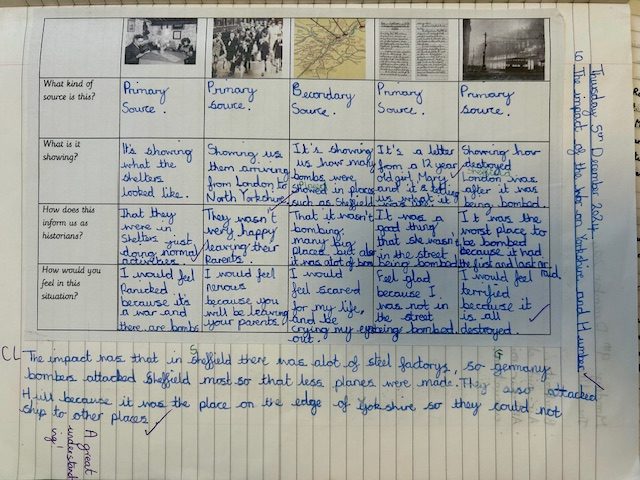 Thursday 5th December 2024
The impact of the war on Yorkshire and Humber
What kind of
source is this?
Primary
Source.
Primary
source.
Secondary
Source.
Primary
Source.
Primary
source.
What is it
showing?
It's showing
what the
shelters
looked like.
Showing us
them arriving
from London to
North Yorkshire
It's showing
us how many
bombs were
placed
showed in places
such as Sheffield
It's a letter
from a 12 year
old girl Mary
and it's telling
us what it
was like.
Showing how
destroyed
London was
after it was
being bombed.
How does this
inform us as
historians?
That they
were in
Shelters just
doing normal
activities
They wasn't
very happy
leaving their
Parents.
That it wasn't
bombing
many big
places but also
it was alot of bom
It was a
good thing
that she wasn't
in the street
being bombed
It was the
worst place to
be bombed
because it had
the first and last air raid.
How would you
feel in this
situation?
I would feel
Panicked
because it's
a war and
there are bombs
I would feel
nervous
because you
will be leaving
your parents!
I would
feel scared
for my life,
and be
crying my eyes
out.
Feel glad
because I
was not in
the street
being bombed.
I would feel
terrified
because it
is all
destroyed.
CL The impact was that in sheffield there was alot of steel factorys, so germany
S
G
bombers attacked Sheffield most so that less planes were made. They also attacked
Hull because it was the place on the edge of Yorkshire so they could not
ship to other places
A great
understand
ing!